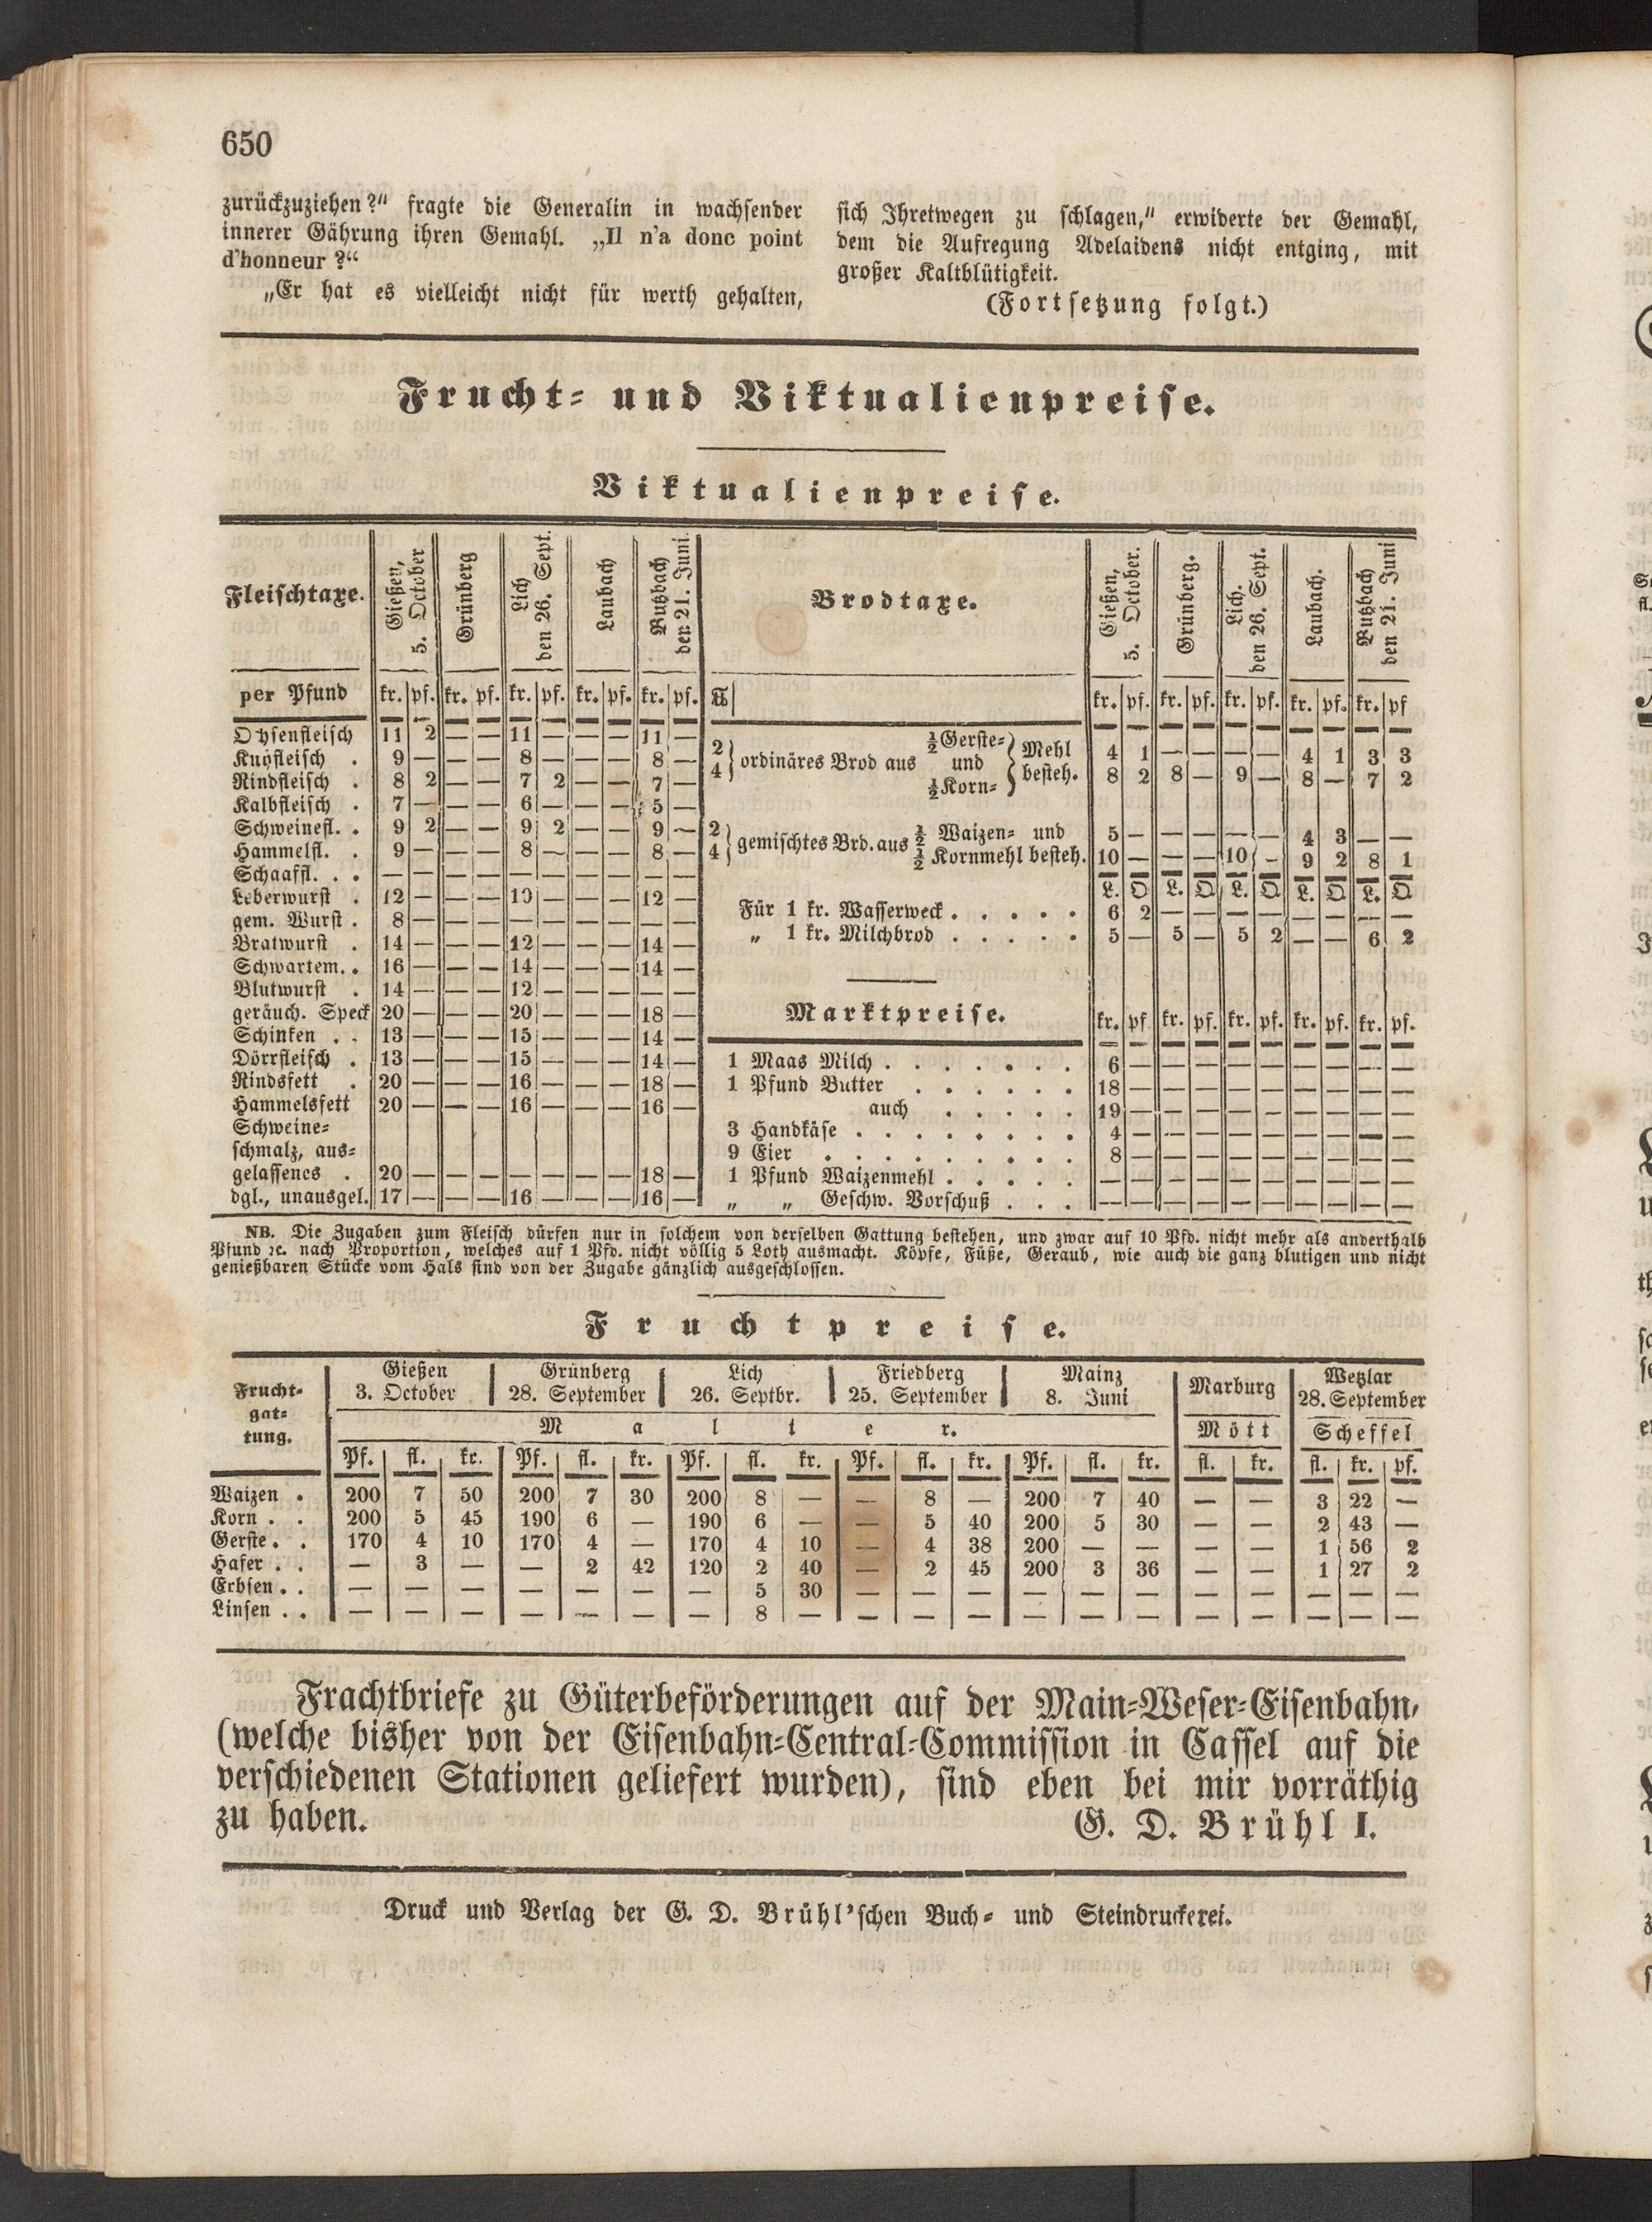 650
zurückzuziehen?" fragte die Generalin in wachsender
innerer Gährung ihren Gemahl. „Il n'a donc point
d'honneur?“
„Er hat es vielleicht nicht für werth gehalten,
sich Ihretwegen zu schlagen," erwiderte der Gemahl,
dem die Aufregung Adelaidens nicht entging, mit
großer Kaltblütigkeit.
(Fortsetzung folgt.)
Frucht- und Viktualienpreise.
Viktualienpreise.
Fleischtaxe. Gießen, 5. October Grünberg Lich den 26. Sept. Laubach Butzbach den 21. Juni.
per Pfund kr. pf. kr. pf. kr. pf. kr. pf. kr. pf.
Ochsenfleisch 11 2 — — 11 — — — 11 —
Kuhfleisch . 9 — — — 8 — — — 8 —
Rindfleisch . 8 2 — — 7 2 — — 7 —
Kalbfleisch . 7 — — — 6 — — — 5 —
Schweinefl. . 9 2 — — 9 2 — — 9 —
Hammelfl. . 9 — — — 8 — — — 8 —
Schaaffl. . . — — — — — — — — — —
Leberwurst . 12 — — — 10 — — — 12 —
gem. Wurst . 8 — — — — — — — — —
Bratwurst . 14 — — — 12 — — — 14 —
Schwartem. . 16 — — — 14 — — — 14 —
Blutwurst . 14 — — — 12 — — — — —
geräuch. Speck 20 — — — 20 — — — 18 —
Schinken . . 13 — — — 15 — — — 14 —
Dörrfleisch . 13 — — — 15 — — — 14 —
Rindsfett . 20 — — — 16 — — — 18 —
Hammelsfett 20 — — — 16 — — — 16 —
Schweine-
schmalz, aus-
gelassenes . 20 — — — — — — — 18 —
dgl., unausgel. 17 — — — 16 — — — 16 —
Brodtaxe. Gießen, 5. October. Grünberg. Lich. den 26. Sept. Laubach. Butzbach den 21. Juni
℔ kr. pf. kr. pf. kr. pf. kr. pf. kr. pf
2 ordinäres Brod aus ½ Gerste- und ½ Korn- Mehl besteh. 4 1 — — — — 4 1 3 3
4 8 2 8 — 9 — 8 — 7 2
2 gemischtes Brd. aus ½ Waizen- und 5 — — — — — 4 3 — —
4 ½ Kornmehl besteh. 10 — — — 10 — 9 2 8 1
L. Q L. Q L. Q L. Q L. Q
Für 1 kr. Wasserweck . . . . . 6 2 — — — — — — — —
„ 1 kr. Milchbrod . . . . . 5 — 5 — 5 2 — — 6 2
Marktpreise. kr. pf kr. pf. kr. pf. kr. pf. kr. pf.
1 Maas Milch . . . . . . . 6 — — — — — — — — —
1 Pfund Butter . . . . . . 18 — — — — — — — — —
auch . . . . . 19 — — — — — — — — —
3 Handkäse . . . . . . . . 4 — — — — — — — — —
9 Eier . . . . . . . . . 8 — — — — — — — — —
1 Pfund Waizenmehl . . . . . — — — — — — — — — —
„ „ Geschw. Vorschuß . . . — — — — — — — — — —
NB. Die Zugaben zum Fleisch dürfen nur in solchem von derselben Gattung bestehen, und zwar auf 10 Pfd. nicht mehr als anderthalb
Pfund ꝛc. nach Proportion, welches auf 1 Pfd. nicht völlig 5 Loth ausmacht. Köpfe, Füße, Geraub, wie auch die ganz blutigen und nicht
genießbaren Stücke vom Hals sind von der Zugabe gänzlich ausgeschlossen.
Fruchtpreise.
Frucht-gat-tung. Gießen 3. October Grünberg 28. September Lich 26. Septbr. Friedberg 25. September Mainz 8. Juni Marburg Wetzlar 28. September
Malter. Mött Scheffel
Pf. fl. kr. Pf. fl. kr. Pf. fl. kr. Pf. fl. kr. Pf. fl. kr. fl. kr. fl. kr. pf.
Waizen . 200 7 50 200 7 30 200 8 — — 8 — 200 7 40 — — 3 22 —
Korn . . 200 5 45 190 6 — 190 6 — — 5 40 200 5 30 — — 2 43 —
Gerste . . 170 4 10 170 4 — 170 4 10 — 4 38 200 — — — — 1 56 2
Hafer . . — 3 — — 2 42 120 2 40 — 2 45 200 3 36 — — 1 27 2
Erbsen . . — — — — — — — 5 30 — — — — — — — — — — —
Linsen . . — — — — — — — 8 — — — — — — — — — — — —
Frachtbriefe zu Güterbeförderungen auf der Main-Weser-Eisenbahn,
(welche bisher von der Eisenbahn-Central-Commission in Cassel auf die
verschiedenen Stationen geliefert wurden), sind eben bei mir vorräthig
zu haben. G. D. Brühl I.
Druck und Verlag der G. D. Brühl'schen Buch- und Steindruckerei.